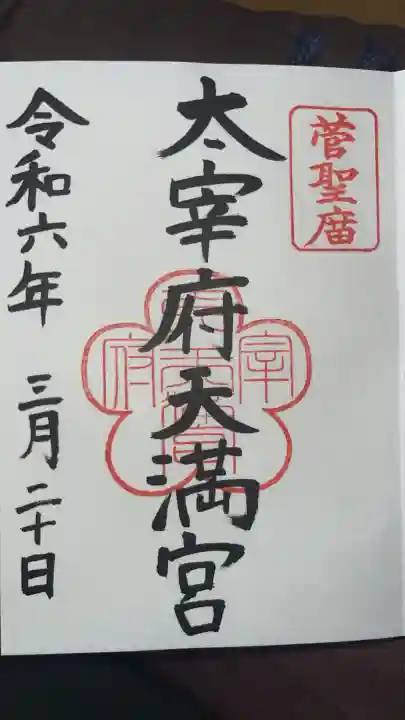 菅聖廟
太宰府天満宮
令和六年 三月二十日